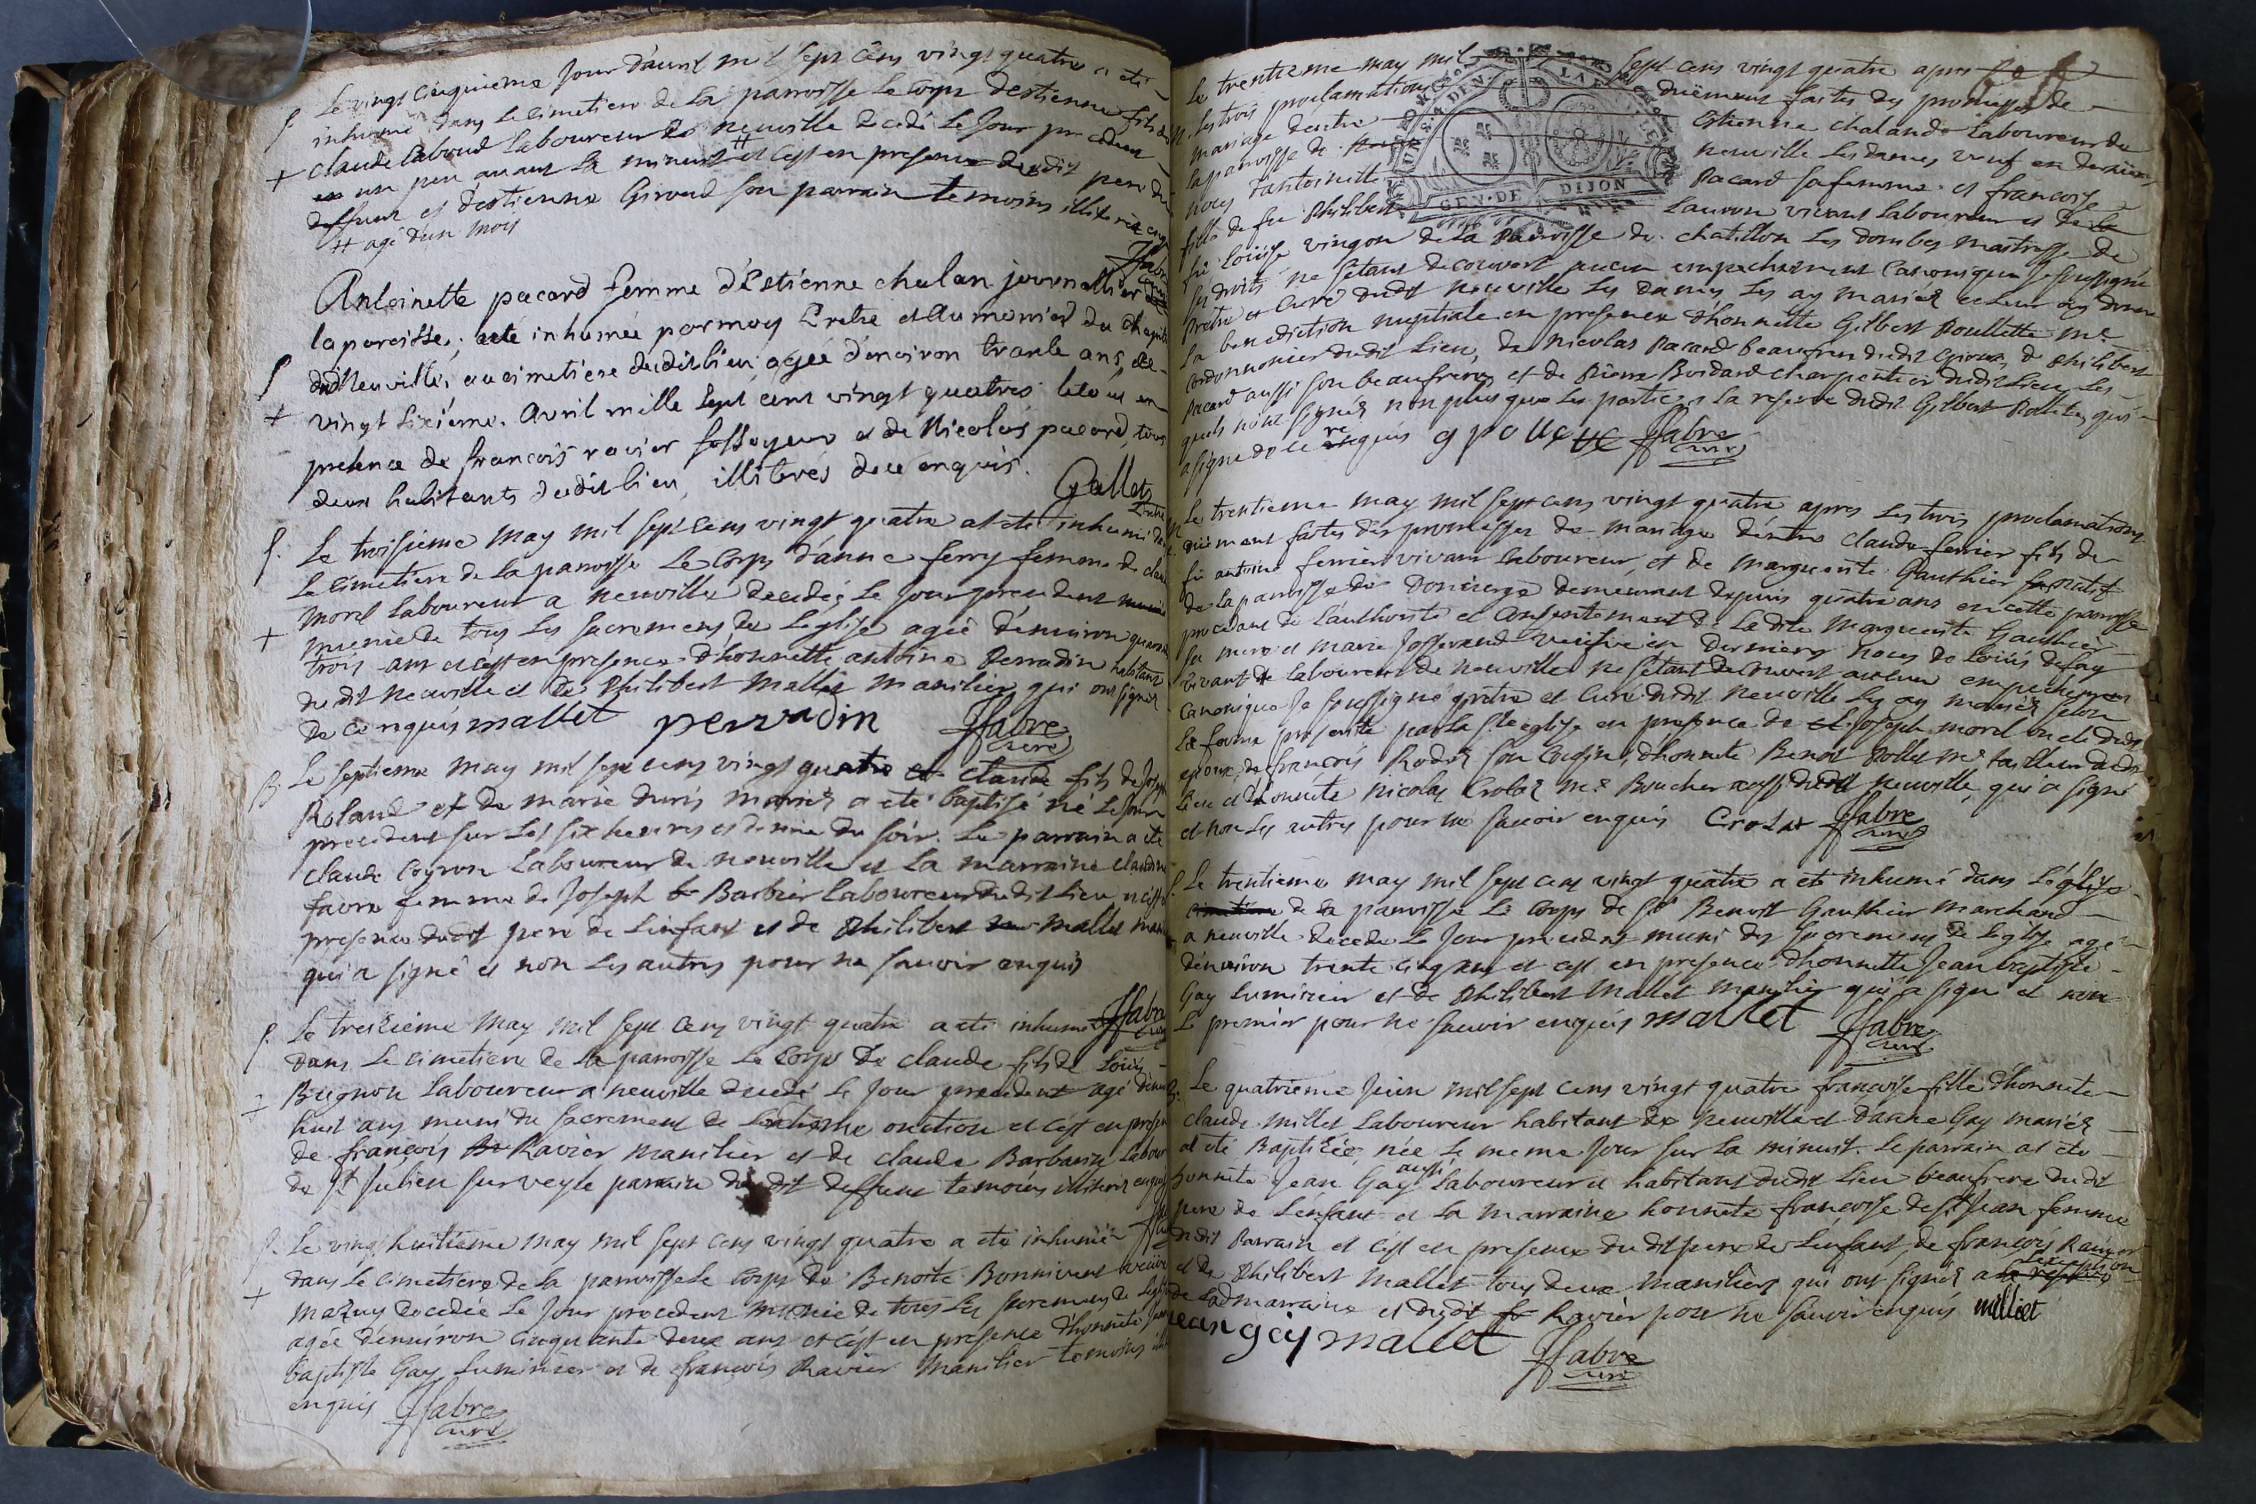 Le vingt cinquieme Jour d'avril mil sept cens vingt quatre a eté
inhumé dans le cimetiere de la parroisse Le Corps d'estienne fils de
claude laboud Laboureur de neuville decedé le Jour precedent
un peu avant la minuit # et c'est en presence dudit pere du
deffunt et d'estienne Giroud son parrain temoins illiterés enquis
# agé d'un mois
ffabre
S
+
Antoinette pacard femme d'Estienne chalan journallier de
la paroisse, aeté inhumée par moy Prêtre et Aumonier du chapitre
dud Neuville, au cimetiere dudit lieu, agée d'environ trante ans, ce
vingt sixiéme. Avril mille sept cent vingt quatres letout en
presence de francois ravier fossoyeur et de Nicolas pacard, tous
deux habitants dudit lieu, illiterés de ce enquis.
Gallet
S
+
Le troisieme may mil sept cens vingt quatre at eté inhumé dans
le cimetiere de la parroisse Le Corps d'anne ferry femme de claude
morel laboureur a neuville decedée le Jour precedent
munie de tous les sacremens de L'eglise agée d'environ quarante
trois ans et c'est en presence d'honnette antoine Perradin habitant
dudit neuville et de Philibert mallet manilier qui ont signé
de ce enquis mallet perradin ffabre
curé
S.
+
Le septieme may mil sept cens vingt quatre claude fils de Joseph
Roland et de marie duris mariés a eté baptisé né le Jour
precedent sur les six heures et demie du soir. Le parrain a eté
claude Coyron Laboureur de neuville et la marraine claudine
favre femme de Joseph Barbier laboureur dudit Lieu et c'est
presence dudit pere de L'enfant et de Philibert mallet
qui a signé et non les autres pour ne sauoir enquis
ffabre
B.
Le treizieme may mil sept cens vingt quatre a eté inhumé
dans Le cimetiere de la parroisse Le Corps de claude fils de Louis
Brignon Laboureur a neuville decedé le Jour precedent agé d'environ
huit ans muni du sacrement de L'extreme onction et c'est en presence
de françois Ravier manilier et de claude Barbarin labour
de St Julien sur veyle parrain dudit deffunt temoins illiterés enquis
S.
+
Le vingt huitieme may mil sept cens vingt quatre a eté inhumée
dans Le cimetiere de la parroisse Le Corps de Benoite Bonnivent veuve
mazuy decedée Le Jour precedent munie de tous les sacremens de L'eglise
agée d'environ cinquante deux ans et c'est en presence d'honnete Jean
baptiste Gay Luminier et de francois Ravier manilier temoins
enquis ffabre
curé
S.
+
Le trentieme may mil sept cens vingt quatre apres
Les trois proclamations duëment faites des promesses de
mariage d'entre Estienne chaland Laboureur de
la parroisse de neuville Les dames veuf en dernieres
noces d'antoinette Pacard sa femme. et francoise
fille de feu Philibert Lauron vivant laboureur et de
fë Loüise vingon de la Parroisse de chatillon Les dombes maitresse de
ses droits ne s'étant decouvert aucun empechement Canonique Je soussigné
Prêtre et Curé dudit neuville Les Dames Les ay mariés et leur ay donné
La benediction nuptiale en presence d'honnette Gilbert Poullette me
Cordonnier dudit Lieu, de nicolas Pacard beaufrere dudit Epoux, de Philibert
Pacard aussi son beaufrere et de Pierre Boidard charpentier dudit Lieu Les
quels n'ont signés non plus que les parties a la reserve dudit Gilbert Pollete qui
a signé de ce requis g pollete ffabre
curé
GEN. DE DIJON
Le trentieme may mil sept cens vingt quatre apres Les trois proclamations
duëment faites des promesses de mariage d'entre claude ferrier fils de
fû antoine ferrier vivant laboureur, et de marguerite Gauthier natif
de la parroisse de Doncierge demeurant depuis quatre ans en cette parroisse
procedant de L'authorité et consentement de La dite Marguerite Gauthier
sa mere et marie Josserand veufve en dernieres noces de Loüis defay
vivant Laboureur de neuville ne s'etant decouvert aucun empechement
Canonique Je soussigné prêtre et Curé dudit neuville Les ay mariés selon
La forme prescrite par la Ste eglise en presence de Joseph morel oncle dudit
epoux, de françois Rodet son Cousin, d'honnete Benoit Pollet me tailleur dudit
Lieu et d'honnete nicolas Crolat me Boucher aussi dudit neuville, qui a signé
et non Les autres pour ne sauoir enquis Crolat ffabre
curé
Le trentieme may mil sept cens vingt quatre a eté inhumé dans L'église
de la parroisse Le Corps de Sr Benoit Gauthier marchand
a neuville decedé Le Jour precedent muni des sacremens de L'eglise agé
d'environ trente cinq ans et c'est en presence d'honnette Jean baptiste
Gay Luminier et de Philibert Mallet manilier qui a signé et non
Le premier pour ne sauoir enquis mallet ffabre
curé
Le quatrieme Juin mil sept cens vingt quatre francoise fille d'honnete
claude millet Laboureur habitant de neuville et d'anne Gay mariés
at eté Baptizée, née le meme Jour sur La minuit. Le parrain at eté
honnete Jean Gay aussi Laboureur et habitant dudit Lieu beaufrere dudit
pere de L'enfant et La marraine honnete françoise de St Jean femme
dudit Parrain et c'est en presence du dit pere de L'enfant, de françois Ravier
et de Philibert Mallet tous deux maniliers qui ont signés a L'exception
de Lad marraine et dudit Ravier pour ne sauoir enquis milliet
jean gay mallet ffabre
curé